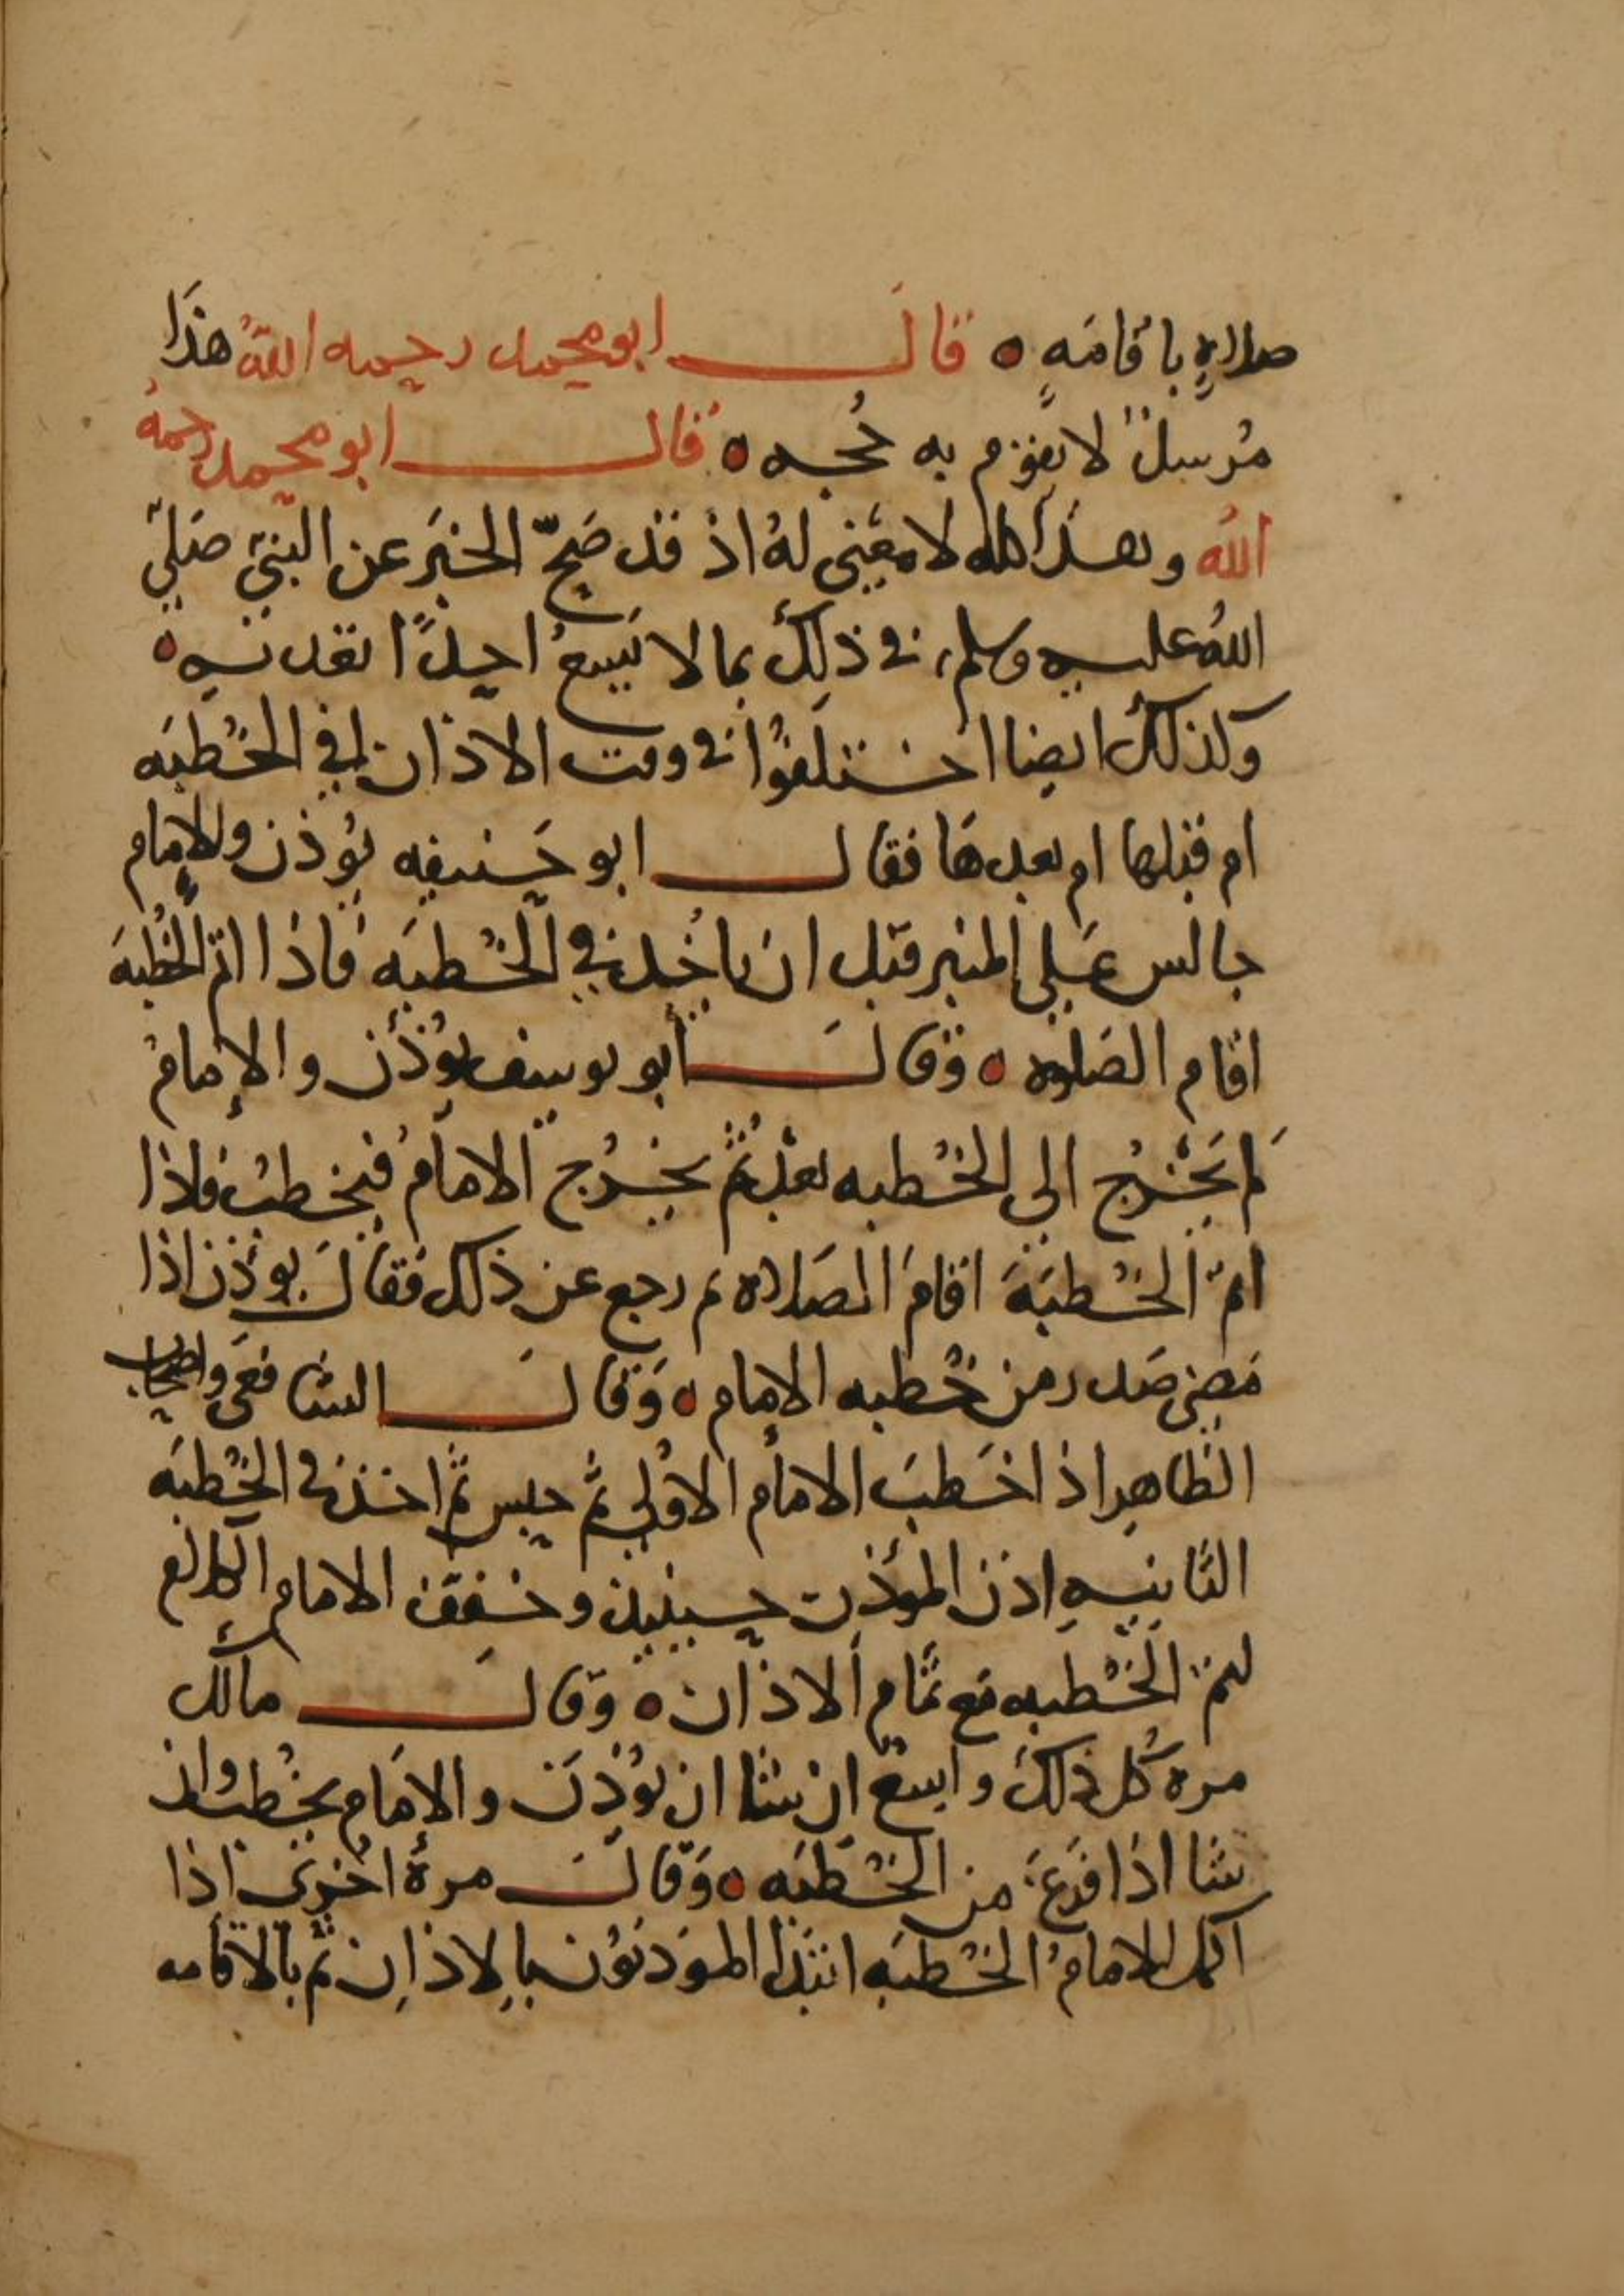 صلاةٍ باقامَهٍ ه قالَ ابو محمد رحمه اللهُ هذَا
مُرسلٌ لا يقوم به حُجه ه قال ابو محمد رحمهُ
اللهُ وهذا كله لا معنى لهُ اذ قد صَحّ الخبَر عن النبيّ صَلىّ
اللهُ عليه وسلم في ذلك بما لا يَسعُ احدًا تعديه ه
وكذلك ايضا اختلفوُا في وقت الاذان افي الخُطبَه
ام قبلها ام بعدهَا فقال ابو حَنيفه يُوذن والإمام
جالس عَلى المنبر قبل ان ياخُد في الخُطبَه فاذا اتمّ الخُطبَهَ
اقام الصَلوه ه وقالَ أبو يوسف يُوذن والإمامُ
لم يَخْرُج الى الخُطبه بعْدُ ثُمّ يخْرُج الامامُ فيخطبُ فاذا
اتمّ الخُطبَهَ اقامَ الصَلاه ثم رجع عن ذلك فقالَ يوذن اذا
مَضى صَدر من خُطبه الإمام ه وَقالَ الشافعى واصحاب
الظاهِر اذا خَطبَ الامامُ الاوُلى ثمّ جلس ثمّ اخذ في الخُطبَه
الثانيهِ اذن الموذن حينيذ وخفِفَ الامام الكلام
ليتم الخُطبه مَع تمام الاذان ه وقالَ مالك
مره كُل ذلكَ واسعٌ ان شا ان يُوذِنَ والامَام يخُطب وان
شا اذا فرَغَ من الخُطبَه ه وَقالَ مرهً اخرى اذا
اكمل الامامُ الخُطبَه ابتدا الموَذنوُن بالاذان ثم بالاقامه